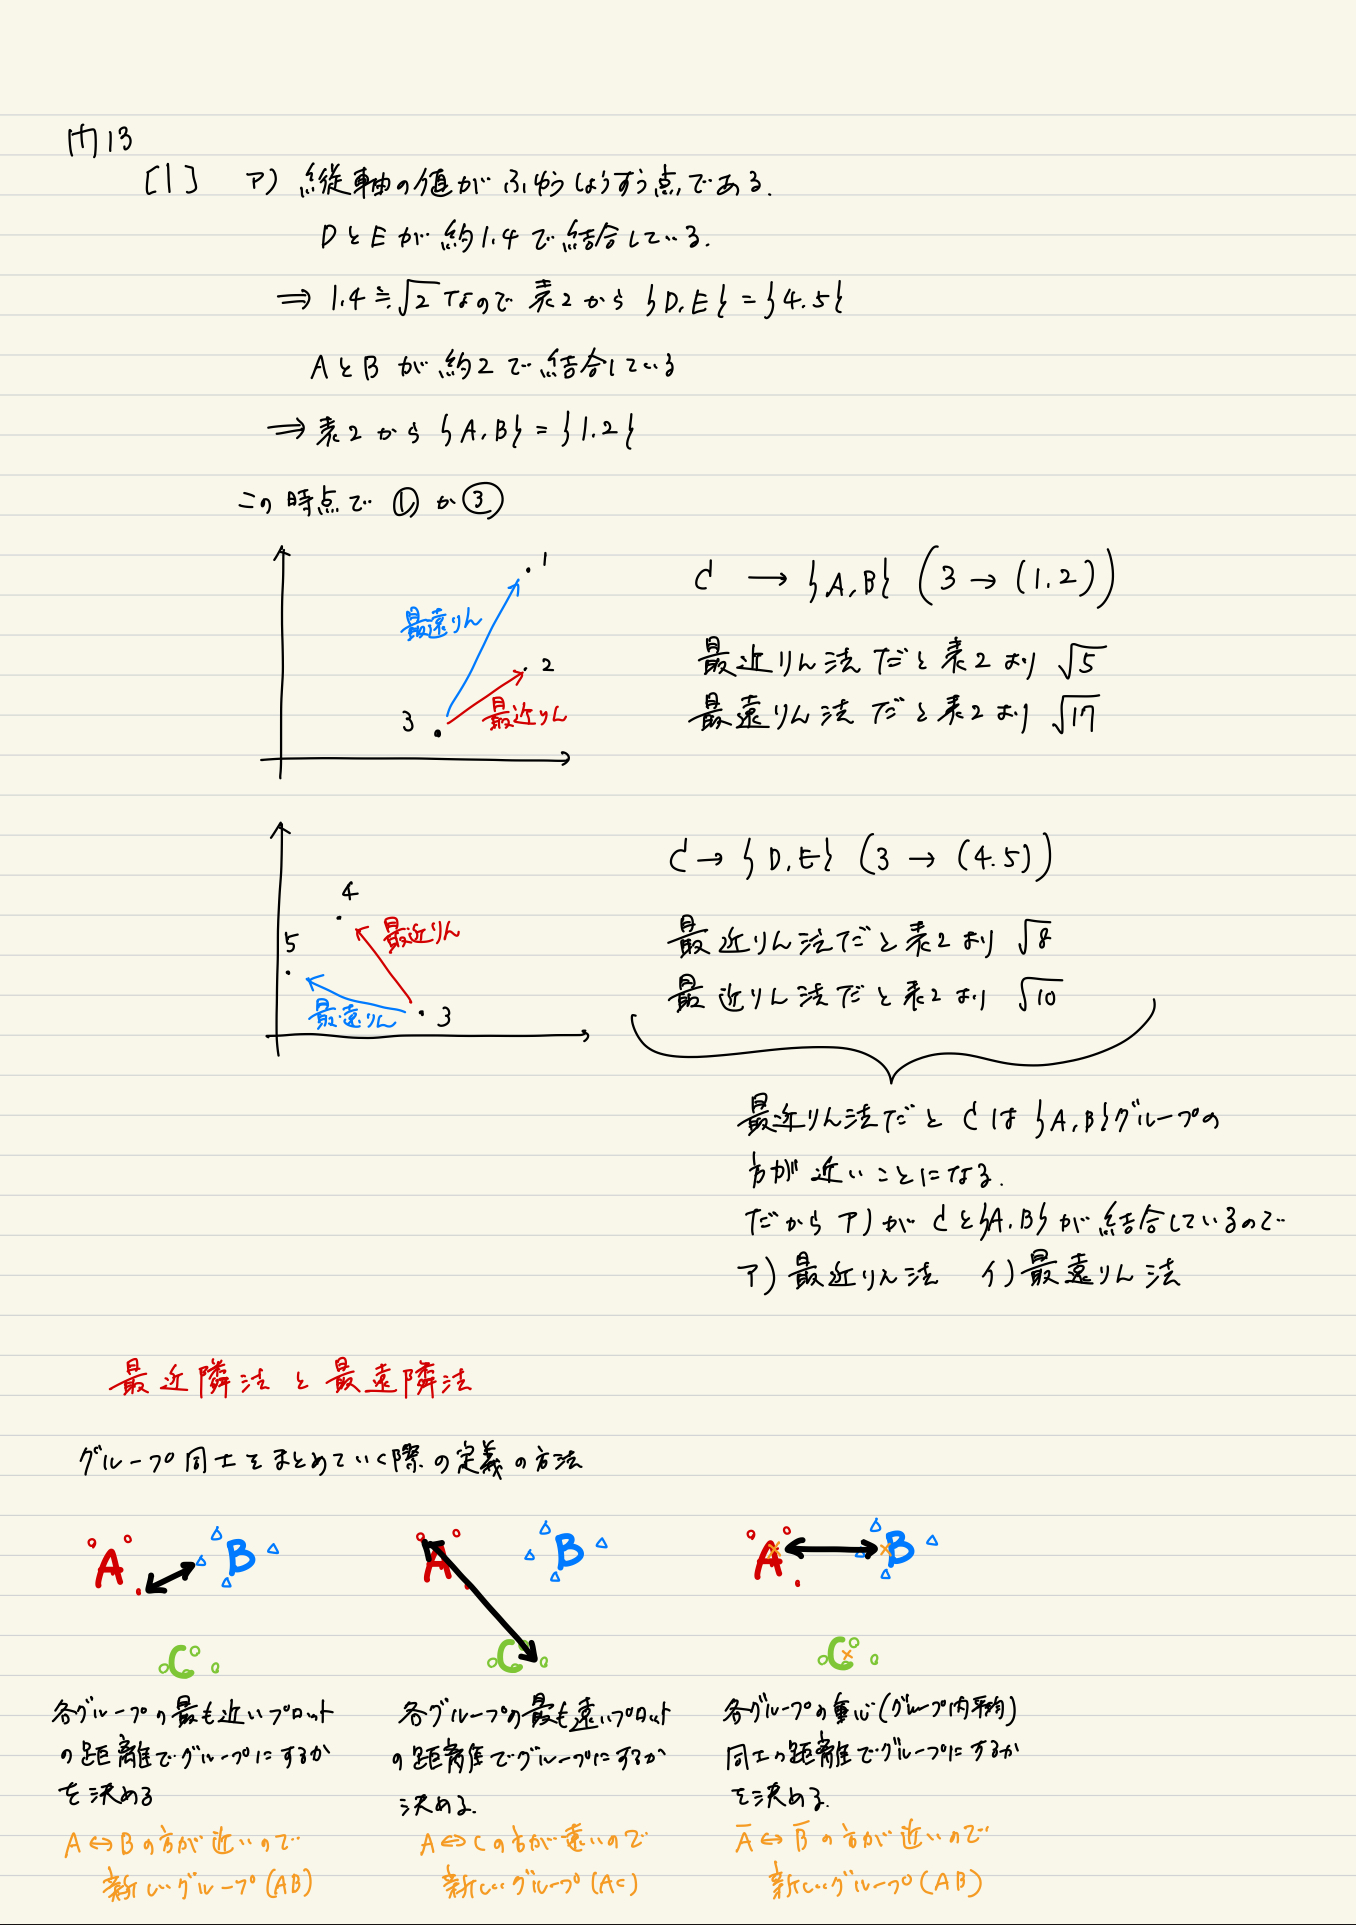 問13
[1] ア) 縦軸の値がふゆうしょうすう点である.
DとEが約1.4で結合している.
⇒ 1.4≒√2なので表2から{D,E}={4.5}
AとBが約2で結合している
⇒ 表2から{A,B}={1.2}
この時点で①か③
1
最遠りん
2
最近りん
3
C → {A,B} (3 → (1.2))
最近りん法だと表2より √5
最遠りん法だと表2より √17
4
最近りん
5
最遠りん
3
C → {D,E} (3 → (4.5))
最近りん法だと表2より √8
最近りん法だと表2より √10
最近りん法だとCは{A,B}グループの
方が近いことになる.
だからア)がCと{A,B}が結合しているので
ア)最近りん法 イ)最遠りん法
最近隣法と最遠隣法
グループ同士をまとめていく際の定義の方法
A B
C
A B
C
A B
C
各グループの最も近いプロット
の距離でグループにするか
を決める
A⇔Bの方が近いので
新しいグループ(AB)
各グループの最も遠いプロット
の距離でグループにするか
決める.
A⇔Cの方が遠いので
新しいグループ(AC)
各グループの重心(グループ内平均)
同士の距離でグループにするか
を決める.
A̅⇔B̅の方が近いので
新しいグループ(AB)